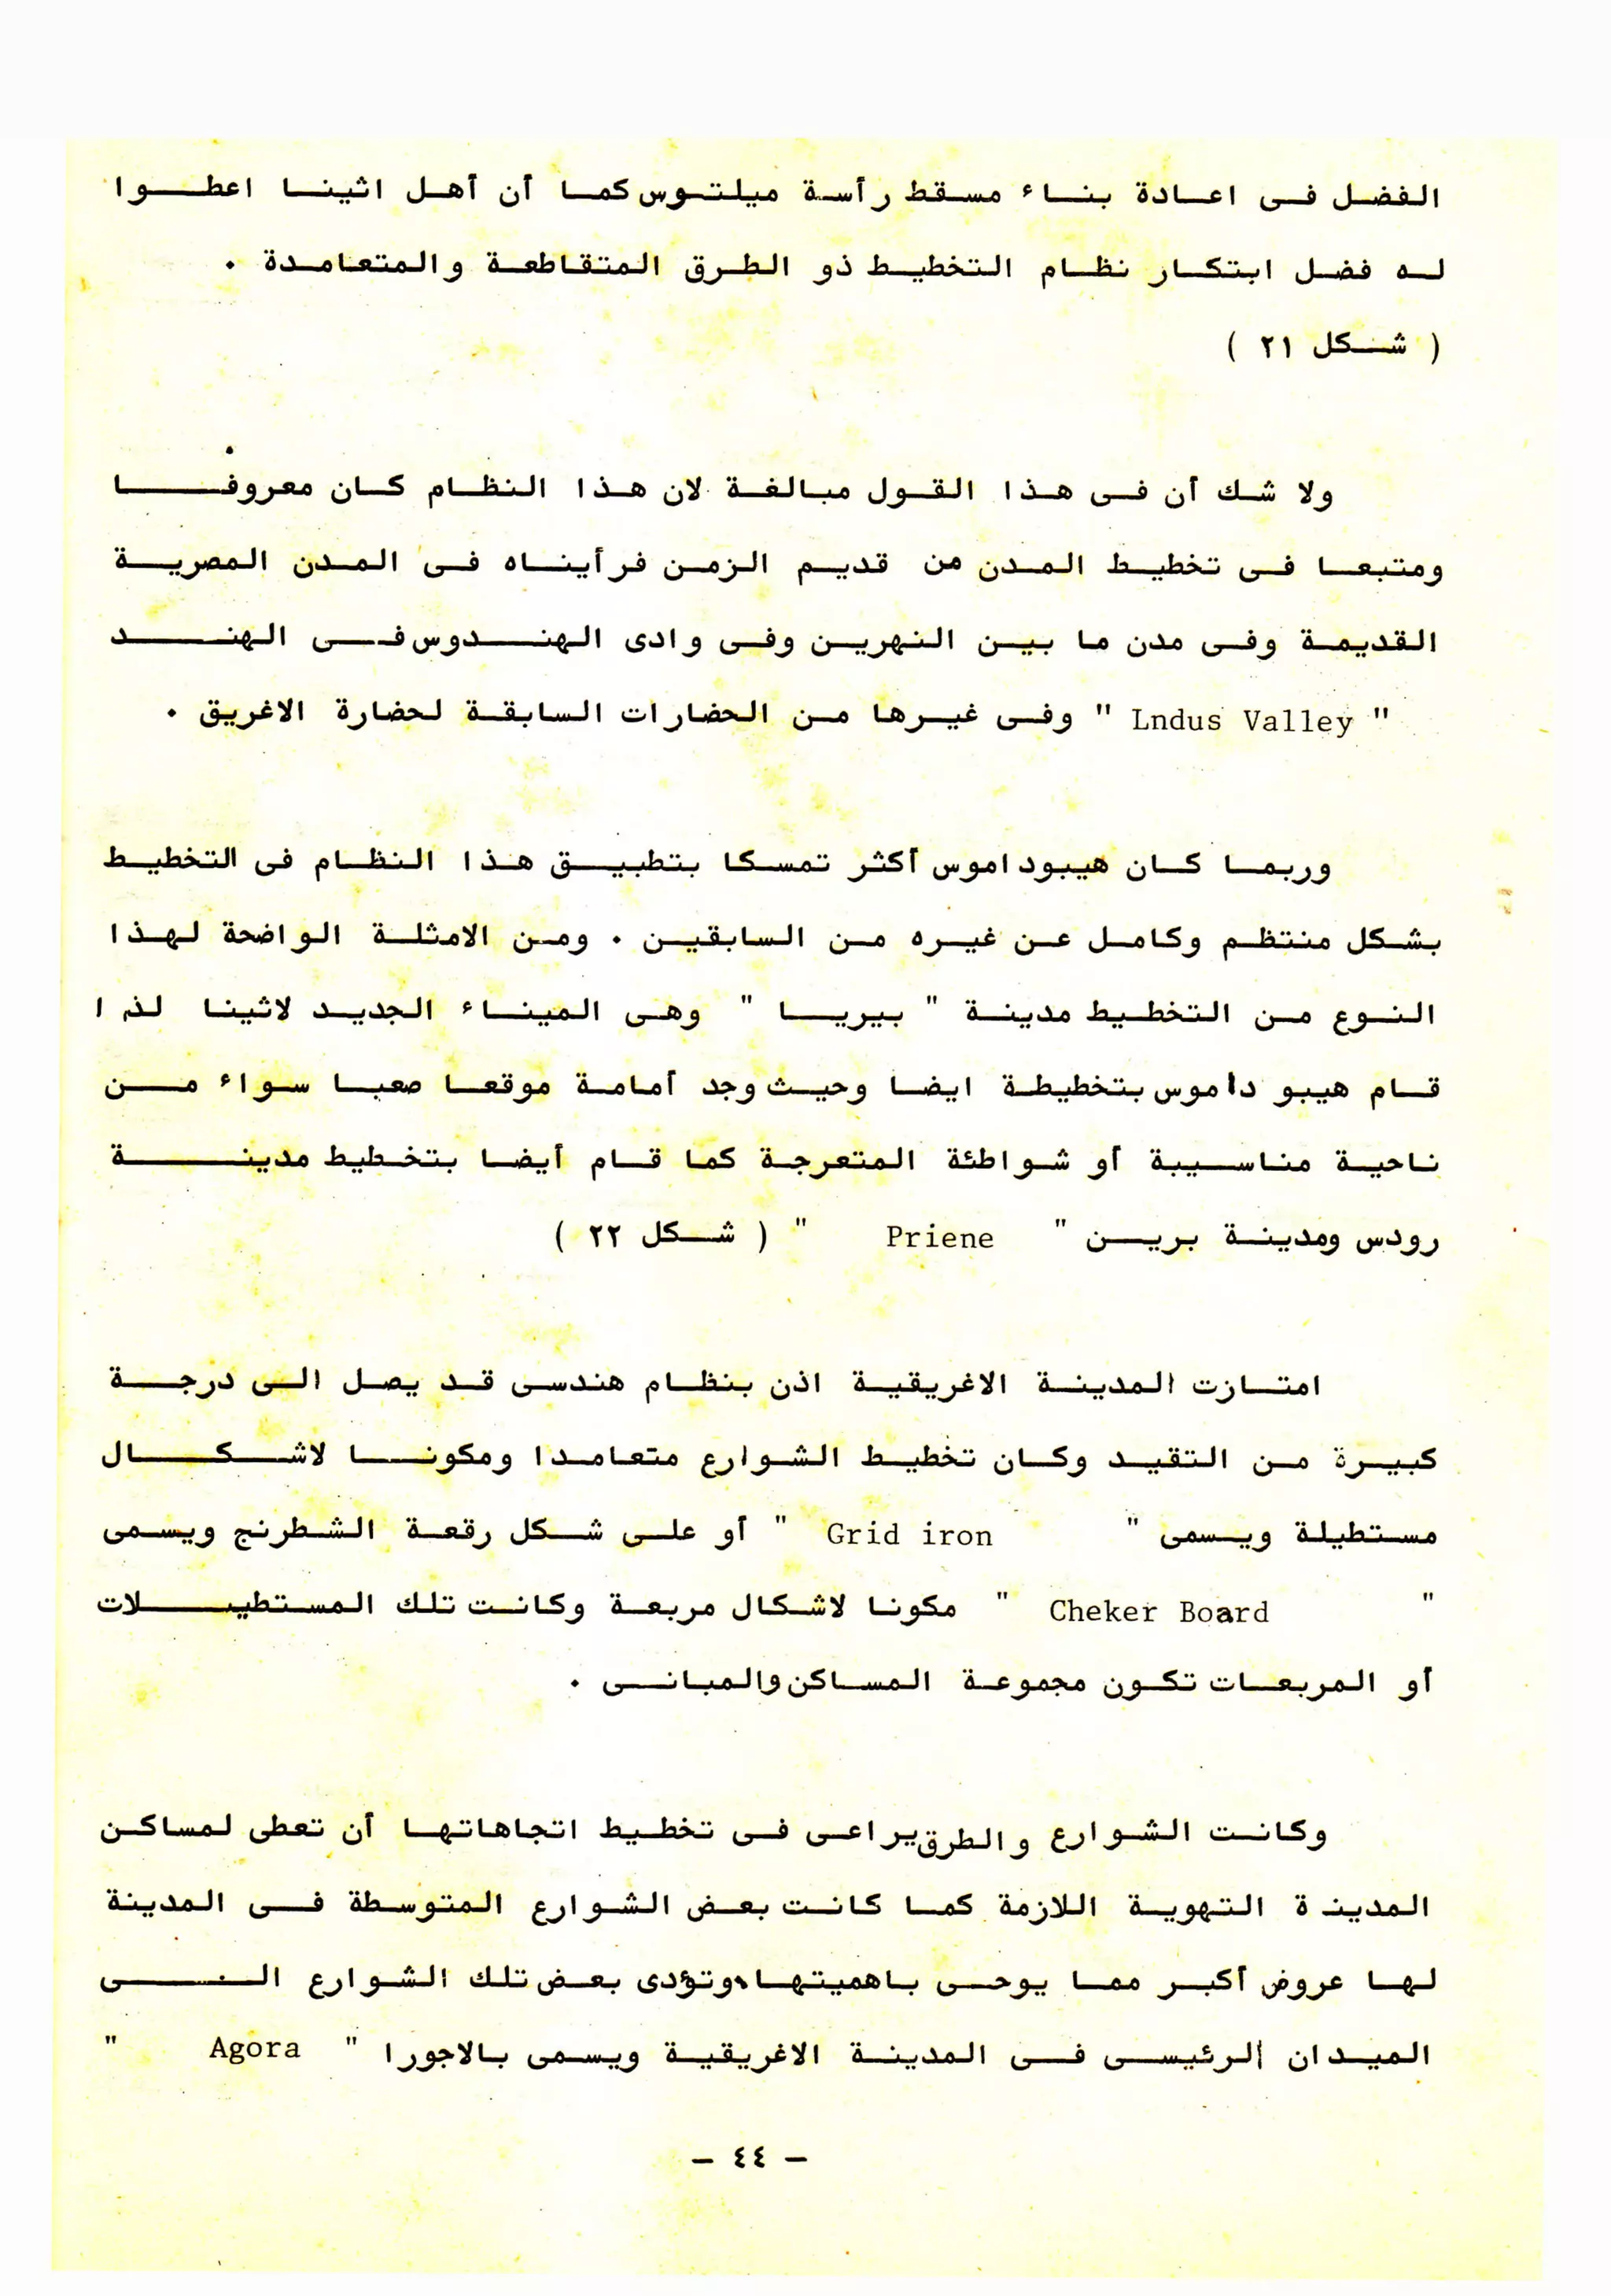 الفضل فى اعادة بناء مسقط رأسة ميلتوس كما أن أهل اثينا اعطوا
له فضل ابتكار نظام التخطيط ذو الطرق المتقاطعة والمتعامدة .
( شكل ٢١ )
ولا شك أن فى هذا القول مبالغة لان هذا النظام كان معروفا
ومتبعا فى تخطيط المدن من قديم الزمن فرأيناه فى المدن المصرية
القديمة وفى مدن ما بين النهرين وفى وادى الهندوس فى الهند
" Lndus Valley " وفى غيرها من الحضارات السابقة لحضارة الاغريق .
وربما كان هيبوداموس أكثر تمسكا بتطبيق هذا النظام فى التخطيط
بشكل منتظم وكامل عن غيره من السابقين . ومن الامثلة الواضحة لهذا
النوع من التخطيط مدينة " بيريا " وهى الميناء الجديد لاثينا لذا
قام هيبو داموس بتخطيطة ايضا وحيث وجد أمامة موقعا صعبا سواء من
ناحية مناسيبة أو شواطئة المتعرجة كما قام أيضا بتخطيط مدينة
رودس ومدينة برين " Priene " ( شكل ٢٢ )
امتازت المدينة الاغريقية اذن بنظام هندسى قد يصل الى درجة
كبيرة من التقيد وكان تخطيط الشوارع متعامدا ومكونا لاشكال
مستطيلة ويسمى " Grid iron " أو على شكل رقعة الشطرنج ويسمى
" Cheker Board " مكونا لاشكال مربعة وكانت تلك المستطيلات
أو المربعات تكون مجموعة المساكن والمبانى .
وكانت الشوارع والطرق يراعى فى تخطيط اتجاهاتها أن تعطى لمساكن
المدينة التهوية اللازمة كما كانت بعض الشوارع المتوسطة فى المدينة
لها عروض أكبر مما يوحى باهميتها، وتؤدى بعض تلك الشوارع الى
الميدان الرئيسى فى المدينة الاغريقية ويسمى بالاجورا " Agora "
- ٤٤ -